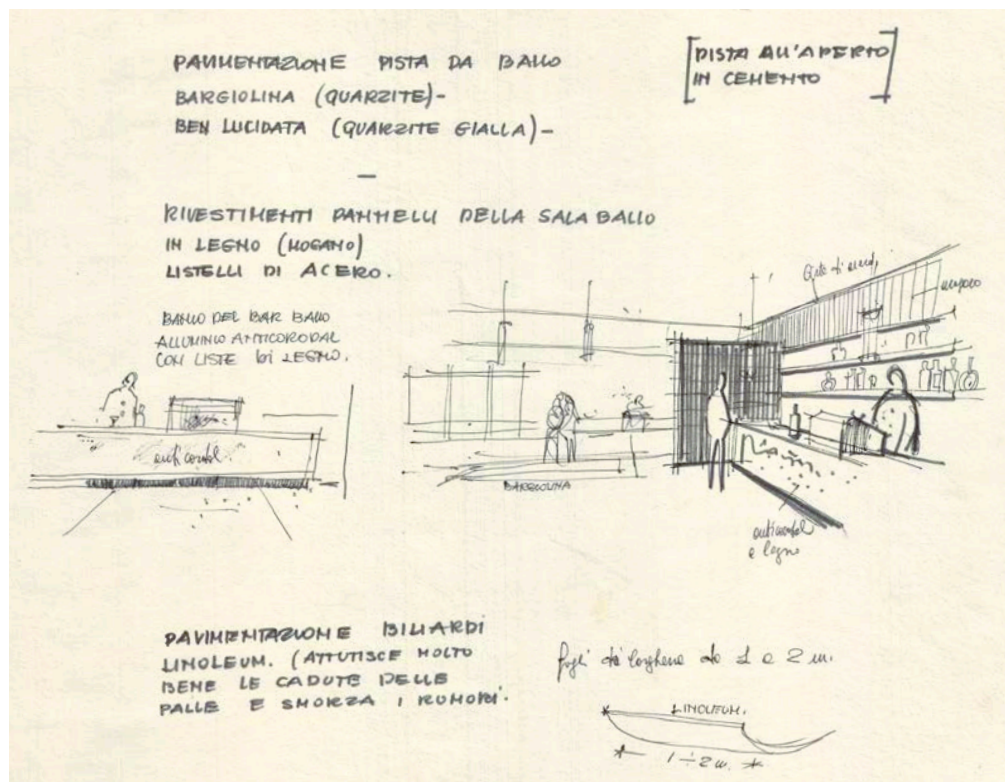 PAVIMENTAZIONE PISTA DA BALLO
BARGIOLINA (QUARZITE)-
BEN LUCIDATA (QUARZITE GIALLA)-
[PISTA ALL'APERTO
IN CEMENTO]
RIVESTIMENTI PANNELLI DELLA SALA BALLO
IN LEGNO (MOGANO)
LISTELLI DI ACERO.
BANCO DEL BAR BALLO
ALLUMINIO ANTICORODAL
CON LISTE DI LEGNO.
anticorodal
BARGIOLINA
mogano
anticorodal
e legno
PAVIMENTAZIONE BILIARDI
LINOLEUM. (ATTUTISCE MOLTO
BENE LE CADUTE DELLE
PALLE E SMORZA I RUMORI.
fogli di larghezza da 1 a 2 m.
LINOLEUM.
1÷2 m.